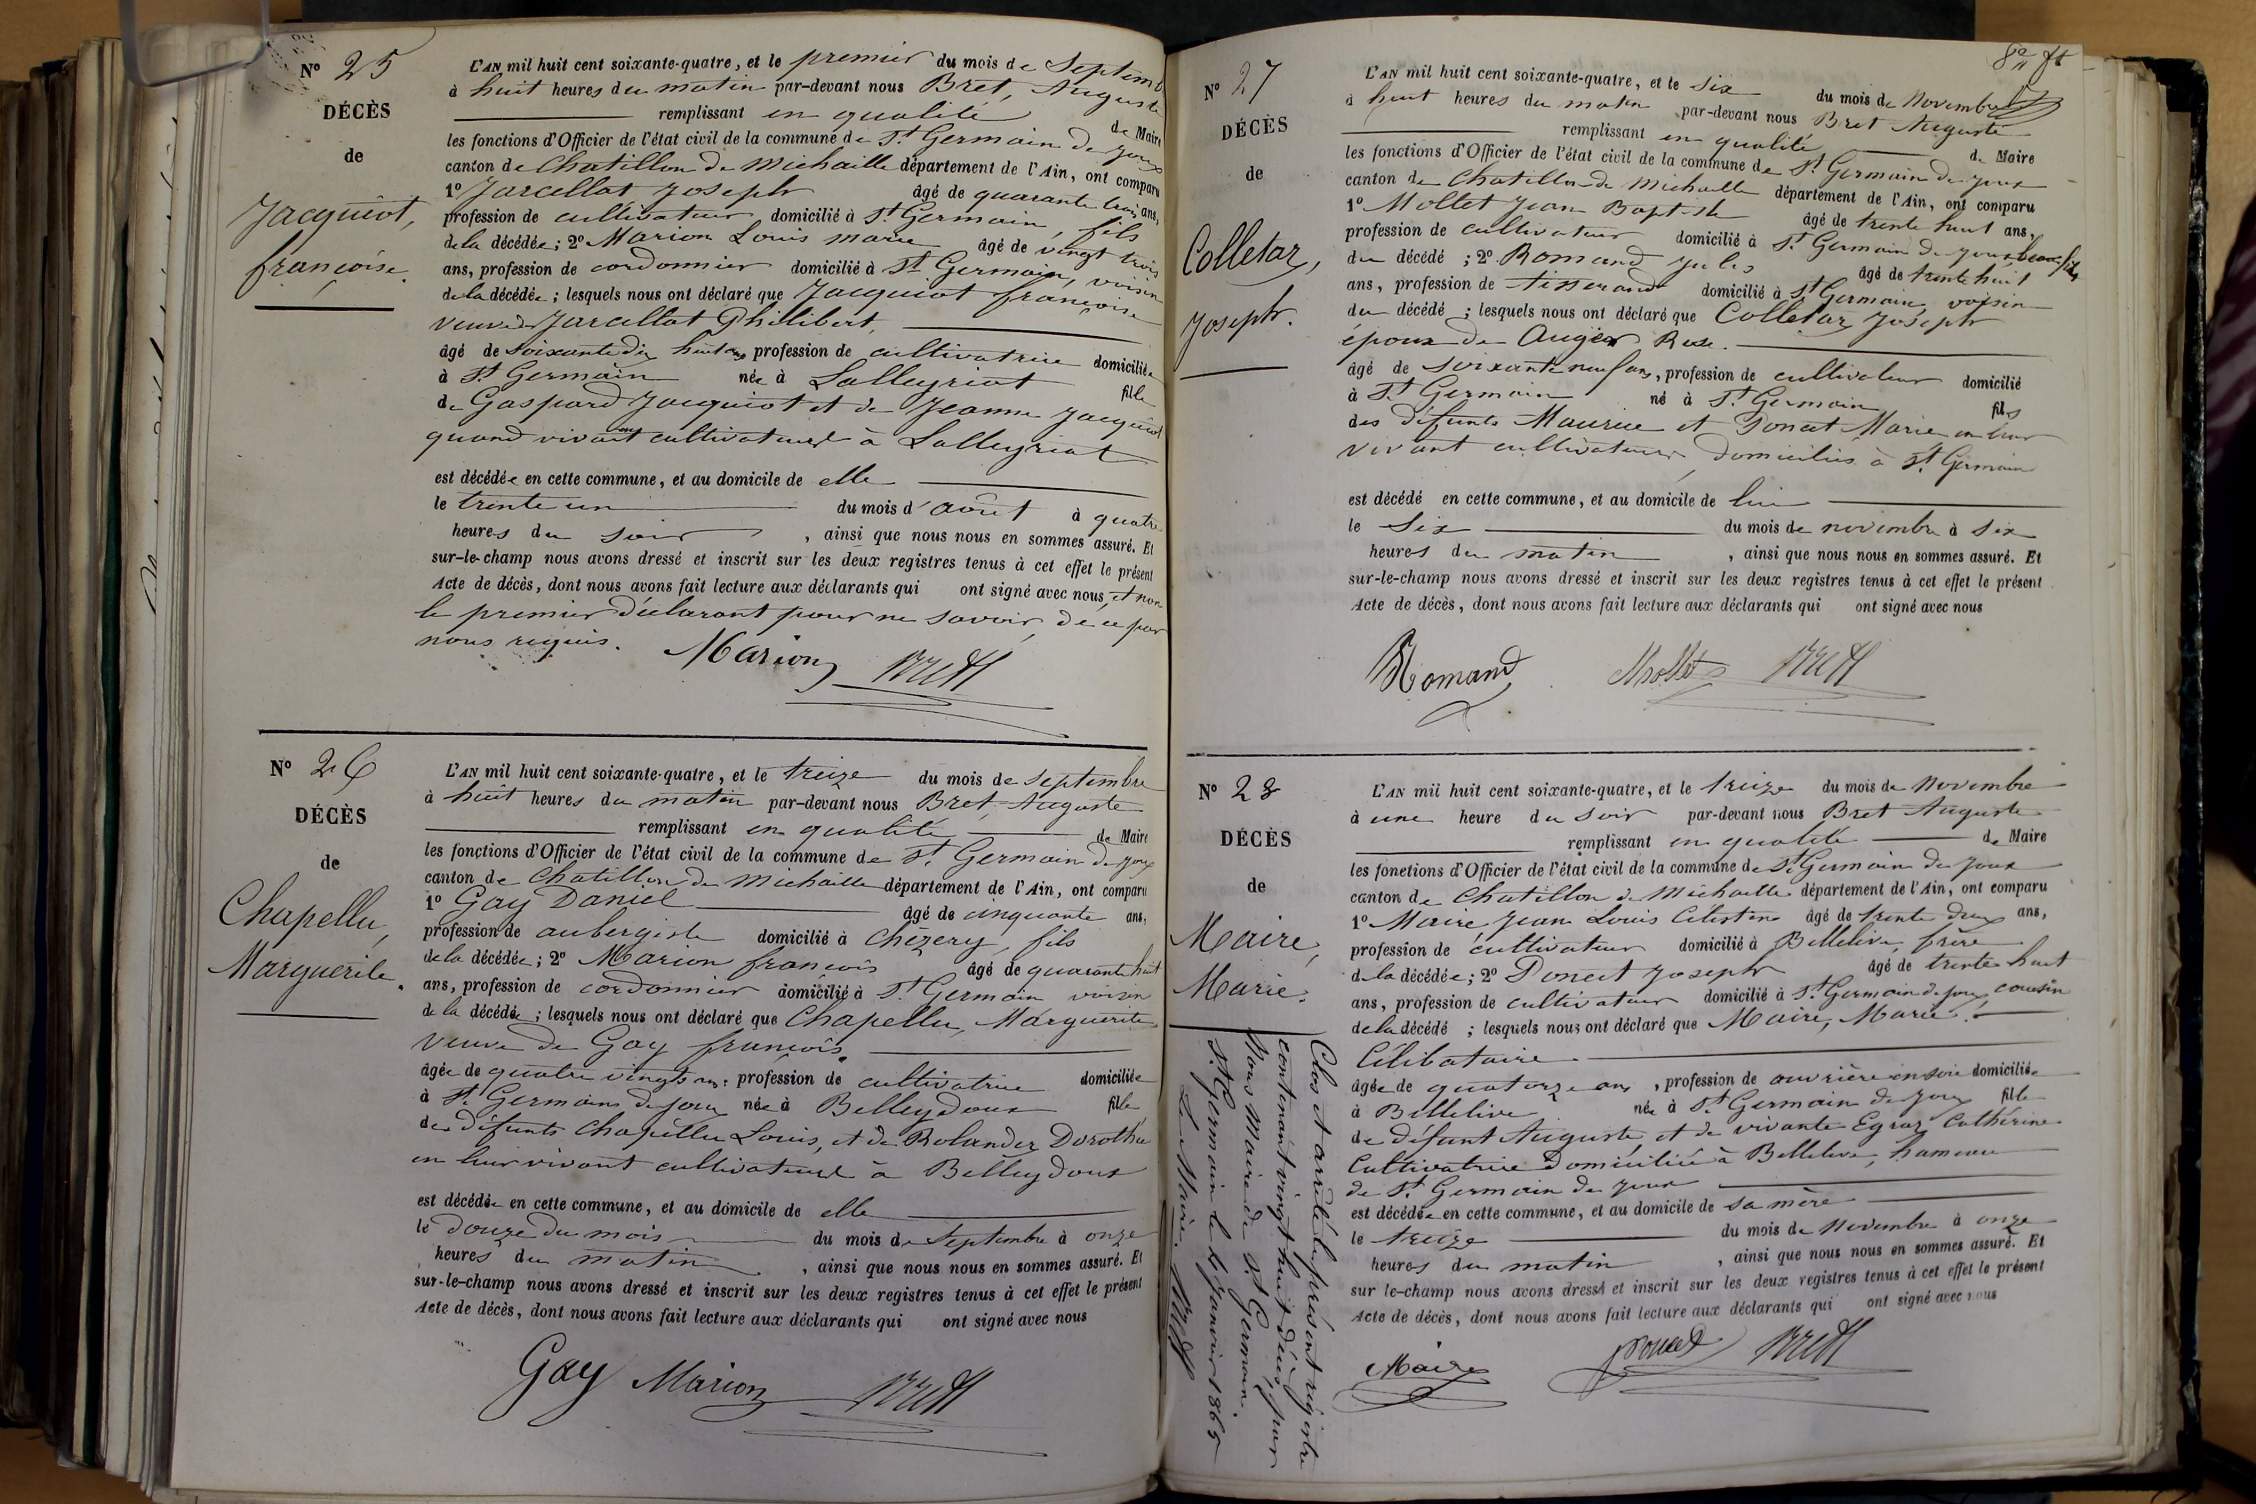 N° 25
DÉCÈS
de
Jacquiot,
françoise.
L'AN mil huit cent soixante-quatre, et le premier du mois de Septemb
à huit heures du matin par-devant nous Bret, Auguste
remplissant en qualité de Maire
les fonctions d'Officier de l'état civil de la commune de St Germain de Joux
canton de Chatillon de Michaille département de l'Ain, ont comparu
1° Jarcellat Joseph âgé de quarante trois ans,
profession de cultivateur domicilié à St Germain, fils
de la décédée; 2° Marion Louis Marie âgé de vingt trois
ans, profession de cordonnier domicilié à St Germain, voisin
de la décédée; lesquels nous ont déclaré que Jacquiot françoise
veuve de Jarcellat Philibert,
âgé de soixante dix huit ans profession de cultivatrice domiciliée
à St Germain née à Lalleyriat fille
de Gaspard Jacquiot et de Jeanne Jacquiot
quand vivaient cultivateurs à Lalleyriat
est décédée en cette commune, et au domicile de elle
le trente un du mois d'août à quatre
heures du soir, ainsi que nous nous en sommes assuré. Et
sur-le-champ nous avons dressé et inscrit sur les deux registres tenus à cet effet le présent
Acte de décès, dont nous avons fait lecture aux déclarants qui ont signé avec nous, et non
le premier déclarant pour ne savoir, de ce par
nous requis. Marion Bret
N° 26
DÉCÈS
de
Chapellu,
Marguerite.
L'AN mil huit cent soixante-quatre, et le treize du mois de septembre
à huit heures du matin par-devant nous Bret, Auguste
remplissant en qualité de Maire
les fonctions d'Officier de l'état civil de la commune de St Germain de Joux
canton de Chatillon de Michaille département de l'Ain, ont comparu
1° Gay Daniel âgé de cinquante ans,
profession de aubergiste domicilié à Chézery, fils
de la décédée; 2° Marion françois âgé de quarante huit
ans, profession de cordonnier domicilié à St Germain voisin
de la décédée; lesquels nous ont déclaré que Chapellu, Marguerite
veuve de Gay françois
âgée de quatre vingts ans profession de cultivatrice domiciliée
à St Germain de Joux née à Belleydoux fille
des défunts Chapellu Louis, et de Rolandez Dorothée
en leur vivant cultivateurs à Belleydoux
est décédée en cette commune, et au domicile de elle
le douze du mois du mois de Septembre à onze
heures du matin, ainsi que nous nous en sommes assuré. Et
sur-le-champ nous avons dressé et inscrit sur les deux registres tenus à cet effet le présent
Acte de décès, dont nous avons fait lecture aux déclarants qui ont signé avec nous
Gay Marion Bret
N° 27
DÉCÈS
de
Colletaz,
Joseph.
L'AN mil huit cent soixante-quatre, et le six du mois de Novembre
à huit heures du matin par-devant nous Bret Auguste
remplissant en qualité de Maire
les fonctions d'Officier de l'état civil de la commune de St Germain de Joux
canton de Chatillon de Michaille département de l'Ain, ont comparu
1° Mollet Jean Baptiste âgé de trente huit ans,
profession de cultivateur domicilié à St Germain de Joux, beau-fils
du décédé; 2° Romand Jules âgé de trente huit
ans, profession de tisserand domicilié à St Germain, voisin
du décédé; lesquels nous ont déclaré que Colletaz Joseph
époux de Auger Rose.
âgé de soixante neuf ans, profession de cultivateur domicilié
à St Germain né à St Germain fils
des défunts Maurice et Poncet Marie en leur
vivant cultivateurs, domiciliés à St Germain
est décédé en cette commune, et au domicile de lui
le Six du mois de novembre à six
heures du matin, ainsi que nous nous en sommes assuré. Et
sur-le-champ nous avons dressé et inscrit sur les deux registres tenus à cet effet le présent
Acte de décès, dont nous avons fait lecture aux déclarants qui ont signé avec nous
Romand Mollet Bret
N° 28
DÉCÈS
de
Maire,
Marie.
L'AN mil huit cent soixante-quatre, et le treize du mois de Novembre
à une heure du soir par-devant nous Bret Auguste
remplissant en qualité de Maire
les fonctions d'Officier de l'état civil de la commune de St Germain de Joux
canton de Chatillon de Michaille département de l'Ain, ont comparu
1° Maire Jean Louis Célestin âgé de trente deux ans,
profession de cultivateur domicilié à Bellelive, frère
de la décédée; 2° Poncet Joseph âgé de trente huit
ans, profession de cultivateur domicilié à St Germain de Joux, cousin
de la décédé; lesquels nous ont déclaré que Maire, Marie.
Célibataire
âgée de quatorze ans, profession de ouvrière en soie domiciliée
à Bellelive née à St Germain de Joux fille
de défunt Auguste, et de vivante Egraz Cathérine
Cultivatrice domiciliée à Bellelive, hameau
de St Germain de Joux
est décédée en cette commune, et au domicile de sa mère
le treize du mois de Novembre à onze
heures du matin, ainsi que nous nous en sommes assuré. Et
sur-le-champ nous avons dressé et inscrit sur les deux registres tenus à cet effet le présent
Acte de décès, dont nous avons fait lecture aux déclarants qui ont signé avec nous
Maire Poncet Bret
Clos et arrêté le présent registre
contenant vingt huit décès, par
Nous Maire de St Germain.
St Germain le 1er Janvier 1865
Le Maire. Bret